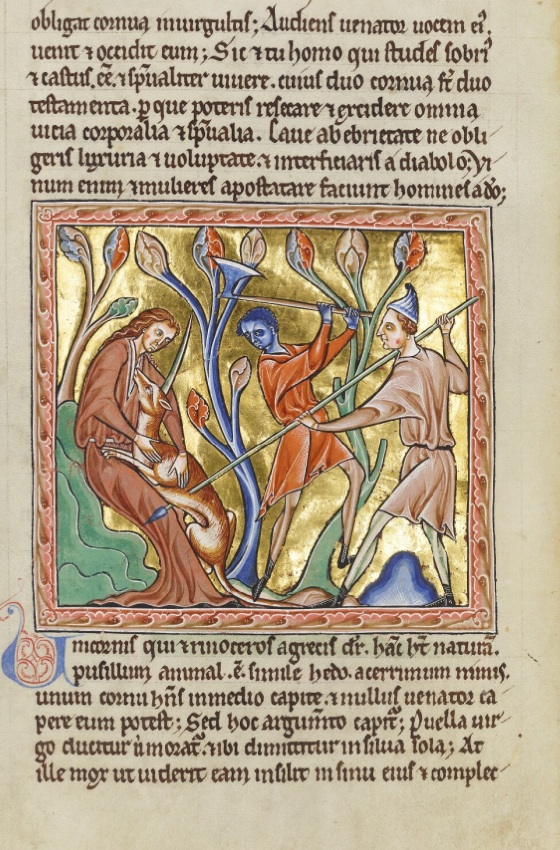 obligat cornua in uirgultis; Audiens uenator uocem eiꝰ.
uenit ⁊ occidit eum; Sic ⁊ tu homo qui studes sobriꝰ
⁊ castus. eē. ⁊ sp̄ualiter uiuere. cuius duo cornua st̄ duo
testamenta. ꝑ que poteris resecare ⁊ excidere omnia
uicia corporalia ⁊ sp̄ualia. Caue ab ebrietate ne obli
geris luxuria ⁊ uoluptate. ⁊ interficiaris a diabolo; Vi
num enim ⁊ mulieres apostatare faciunt homines a do;
Unicornis qui ⁊ rinoceros a grecis dr̄. hāc ht̄ naturā.
pusillum animal. ē. simile hedo. acerrimum nimis.
unum cornu hn̄s in medio capite. ⁊ nullus uenator ca
pere eum potest; Sed hoc argumto capit; Puella uir
go ducitur ⁊ ibi dimittitur in silua sola; At
ille mox ut uiderit eam insilit in sinu eius ⁊ complec